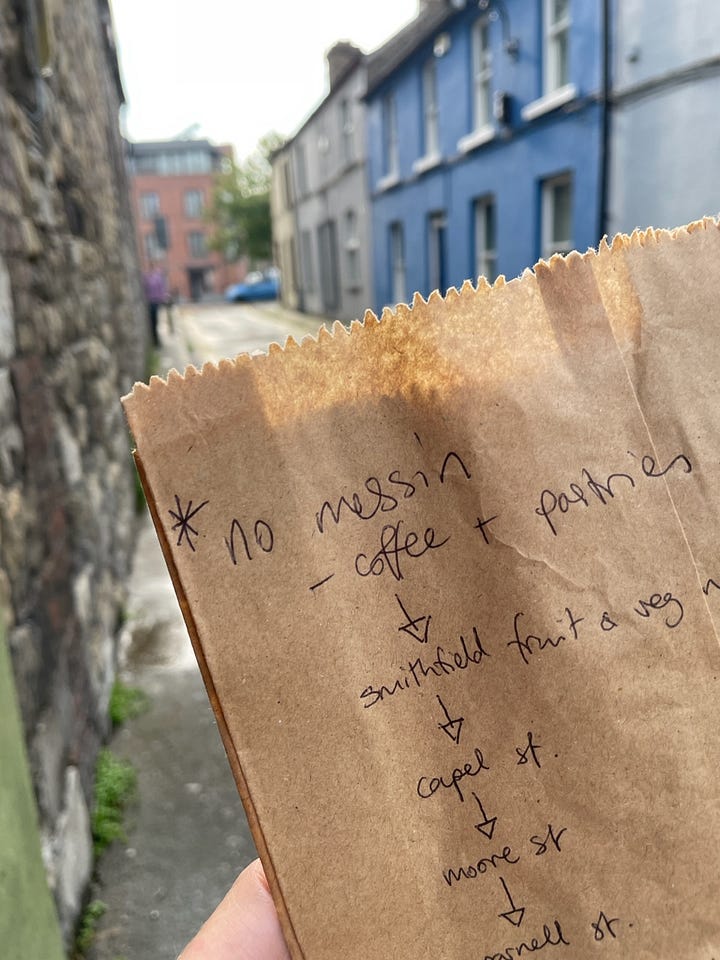 * no messin
- coffee + pastries
↓
smithfield fruit & veg
↓
capel st.
↓
moore st
↓
st.